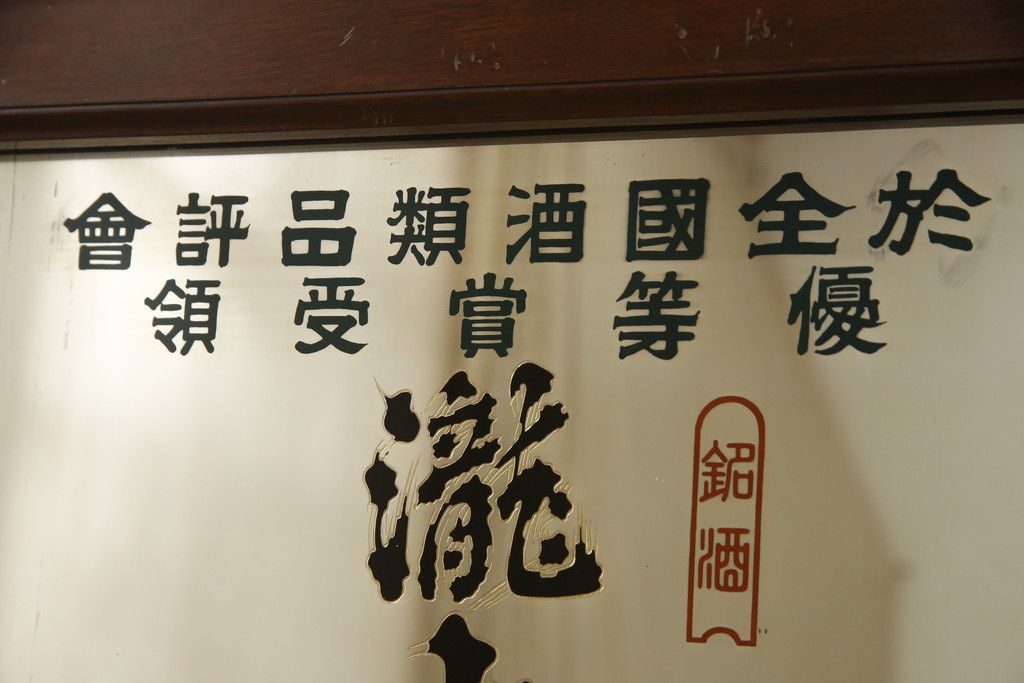 於全國酒類品評會
優等賞受領
銘酒
瀧